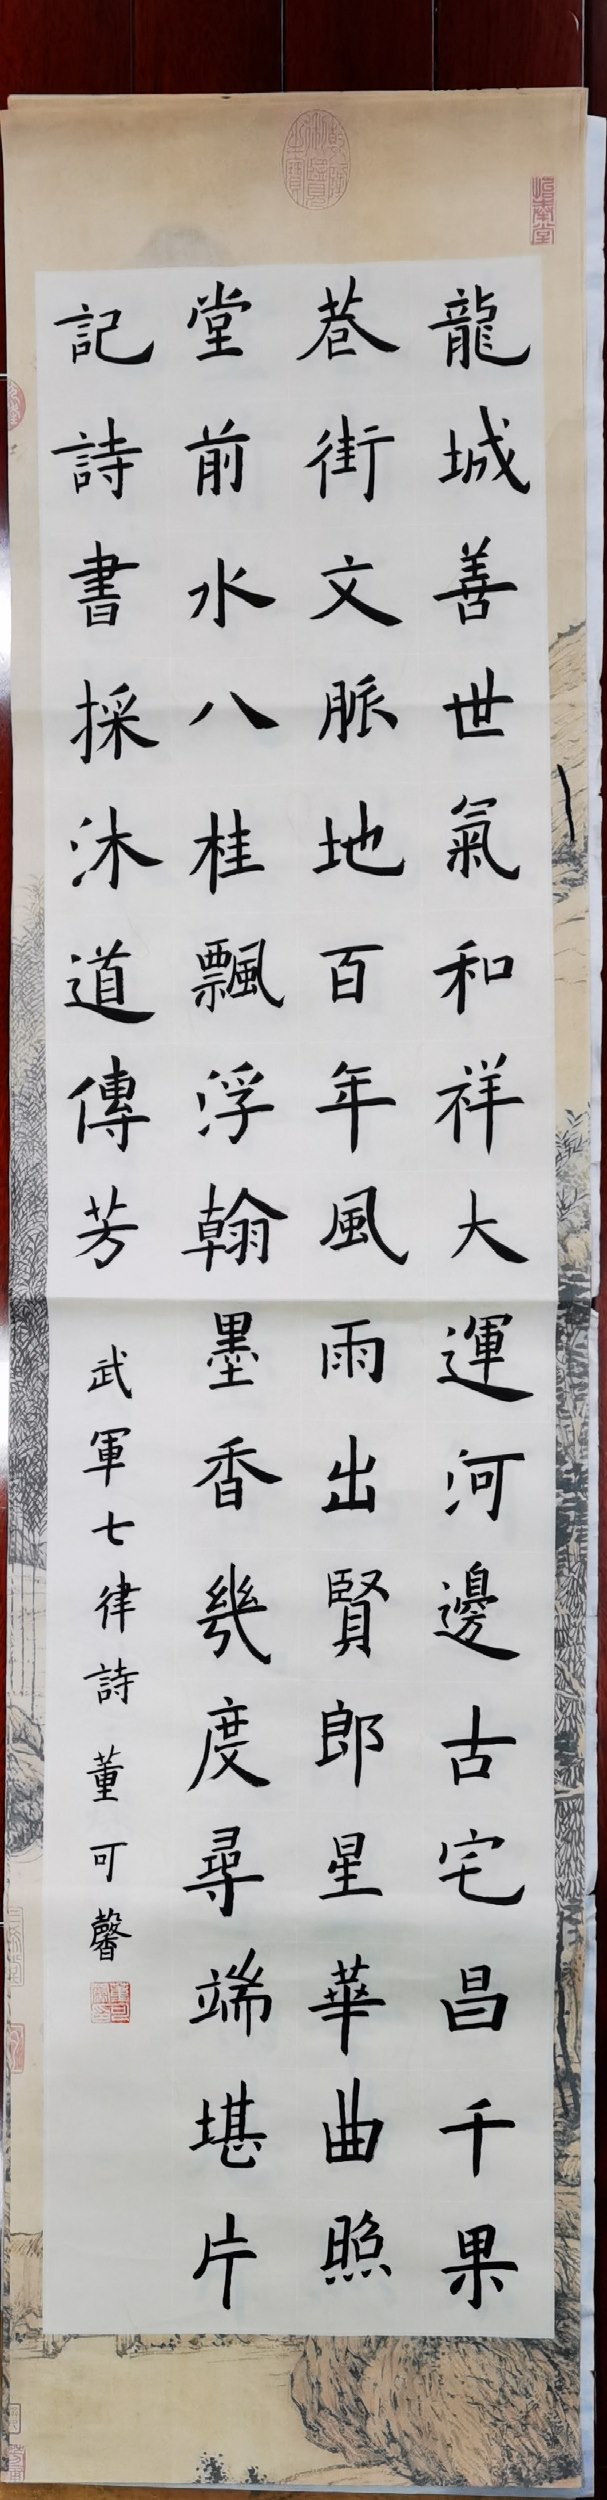 龍城善世氣和祥大運河邊古宅昌千果
巷街文脈地百年風雨出賢郎星華曲照
堂前水八桂飄浮翰墨香幾度尋端堪片
記詩書採沐道傳芳
武軍七律詩董可馨